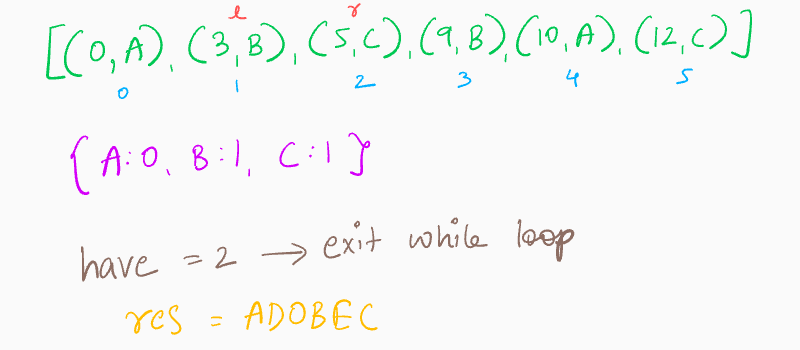 l r
[(0,A), (3,B), (5,C), (9,B), (10,A), (12,C)]
0 1 2 3 4 5
{A:0, B:1, C:1}
have = 2 → exit while loop
res = ADOBEC